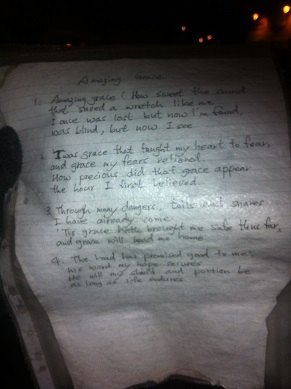 Amazing Grace
1. Amazing grace! How sweet the sound
that saved a wretch like me
I once was lost but now I'm found
was blind, but now I see
2. Twas grace that taught my heart to fear,
and grace my fears relieved
How precious did that grace appear
the hour I first believed
3. Through many dangers, toils and snares
I have already come
'Tis grace hath brought me safe thus far,
and grace will lead me home
4. The has promised good to me,
his word my hope secures
He will my shield and portion be
as long as life endures